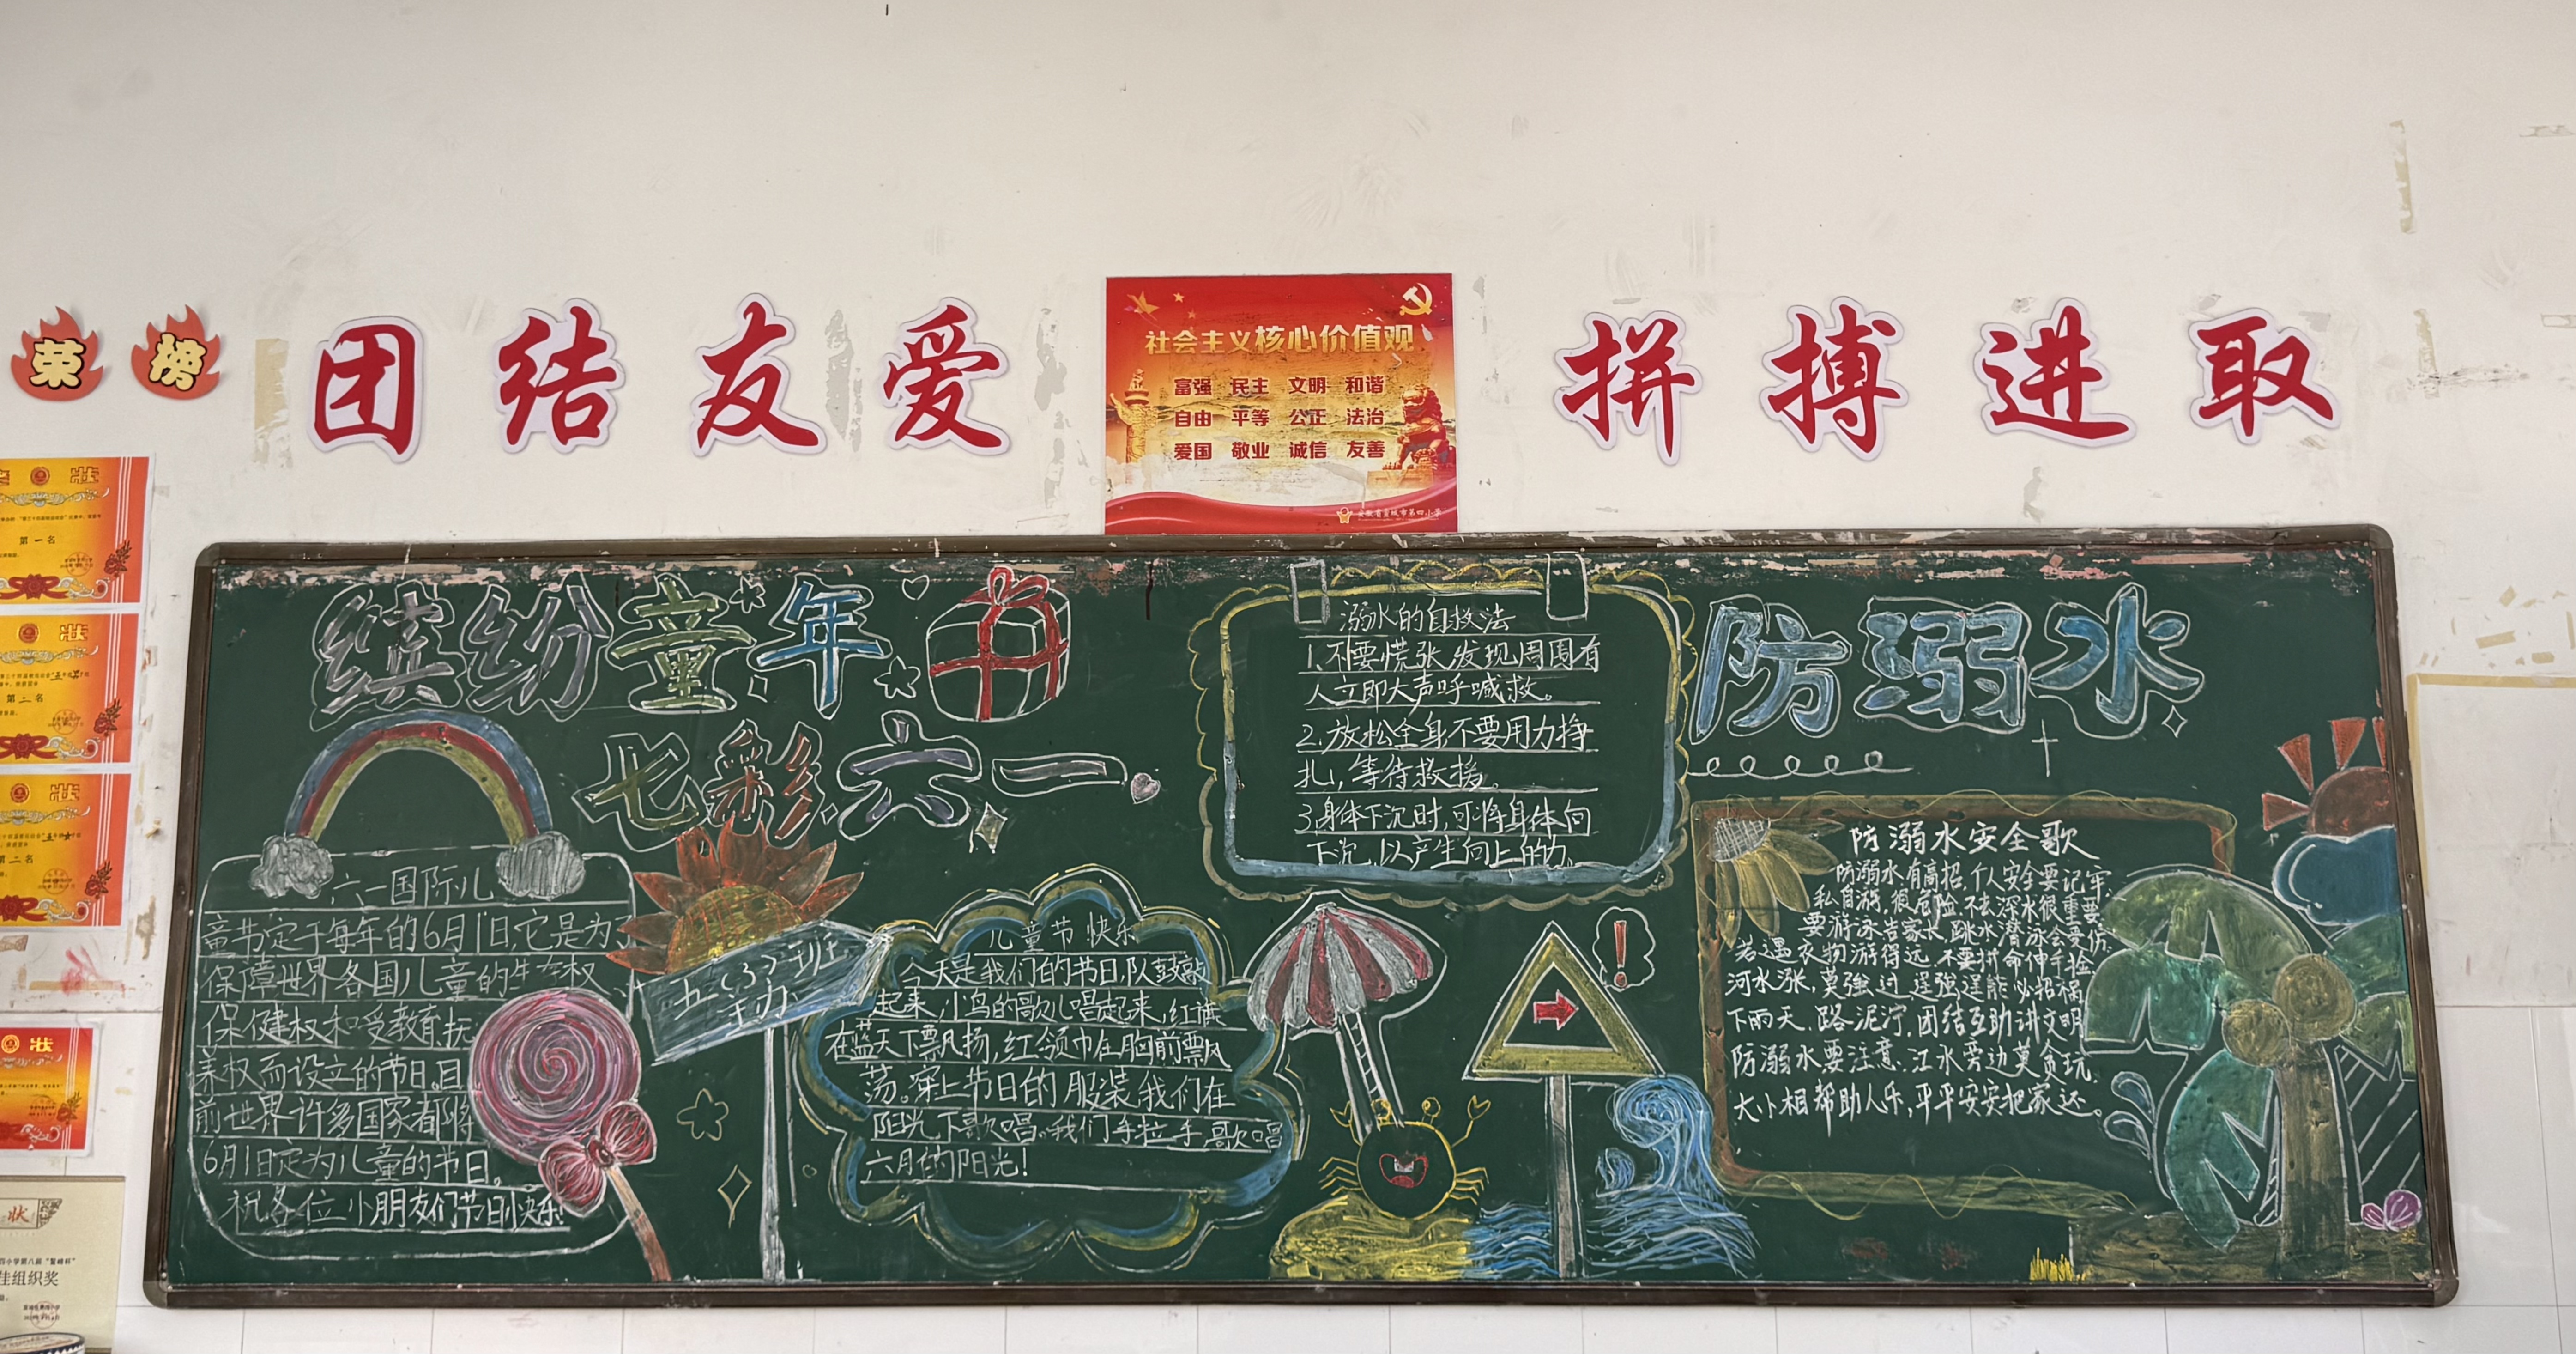 荣 榜
团 结 友 爱
社会主义核心价值观
富强 民主 文明 和谐
自由 平等 公正 法治
爱国 敬业 诚信 友善
安徽省宣城市第四小学
拼 搏 进 取
状
第一名
状
第二名
状
第二名
状
状
佳组织奖
缤纷童年
七彩六一
六一国际儿
童节定于每年的6月1日,它是为了
保障世界各国儿童的生存权、
保健权和受教育、抚
养权而设立的节日。目
前世界许多国家都将
6月1日定为儿童的节日。
祝各位小朋友们节日快乐!
五(3)班
主办
儿童节快乐
今天是我们的节日,队鼓敲
起来,小鸟的歌儿唱起来,红旗
在蓝天下飘扬,红领巾在胸前飘
荡。穿上节日的服装我们在
阳光下歌唱。我们手拉手,歌唱
六月的阳光!
溺水的自救法
1.不要慌张,发现周围有
人立即大声呼喊救。
2.放松全身不要用力挣
扎,等待救援。
3.身体下沉时,可将身体向
下沉,以产生向上的力。
防溺水
防溺水安全歌
防溺水有高招,个人安全要记牢.
私自游,很危险,不去深水很重要.
要游泳告家长,跳水潜泳会受伤.
若遇衣物游得远,不要拼命伸手捡.
河水涨,莫强过,逞强逞能必招祸.
下雨天,路泥泞,团结互助讲文明
防溺水要注意,江水旁边莫贪玩.
大小相帮助人乐,平平安安把家还。